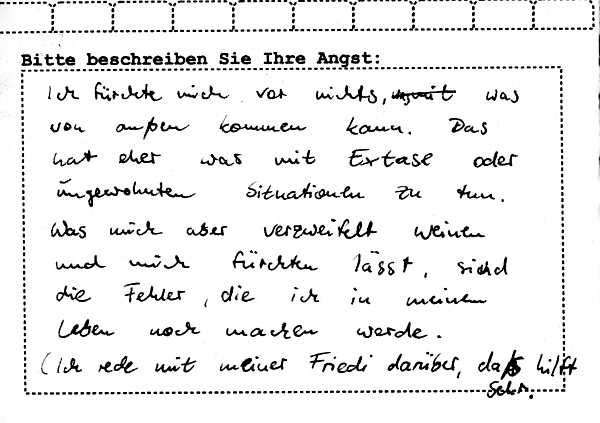 Bitte beschreiben Sie Ihre Angst:
Ich fürchte mich vor nichts, was
von außen kommen kann. Das
hat eher was mit Extase oder
ungewohnten Situationen zu tun.
Was mich aber verzweifelt weinen
und mich fürchten lässt, sind
die Fehler, die ich in meinem
Leben noch machen werde.
(Ich rede mit meiner Friedi darüber, das hilft
sehr.